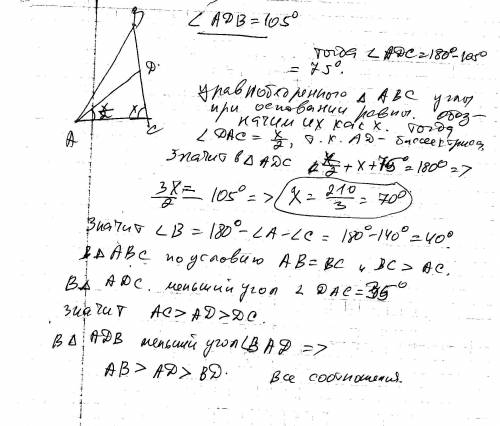 ∠ADB = 105°
тогда ∠ADC = 180° - 105°
= 75°.
У равнобедренного △ ABC углы
при основании равны. Обоз-
начим их как x. Тогда
∠DAC = x/2, т.к. AD - биссектриса
Значит в △ADC x/2 + x + 75° = 180° =>
3x/2 = 105° => x = 210/3 = 70°
Значит ∠B = 180° - ∠A - ∠C = 180° - 140° = 40°
В △ ABC по условию AB = BC и BC > AC.
В △ ADC. меньший угол ∠ DAC = 35°
Значит AC > AD > DC.
В △ ADB меньший угол ∠BAD =>
AB > AD > BD. Все соотношения.
D.
x/2
x
A
C